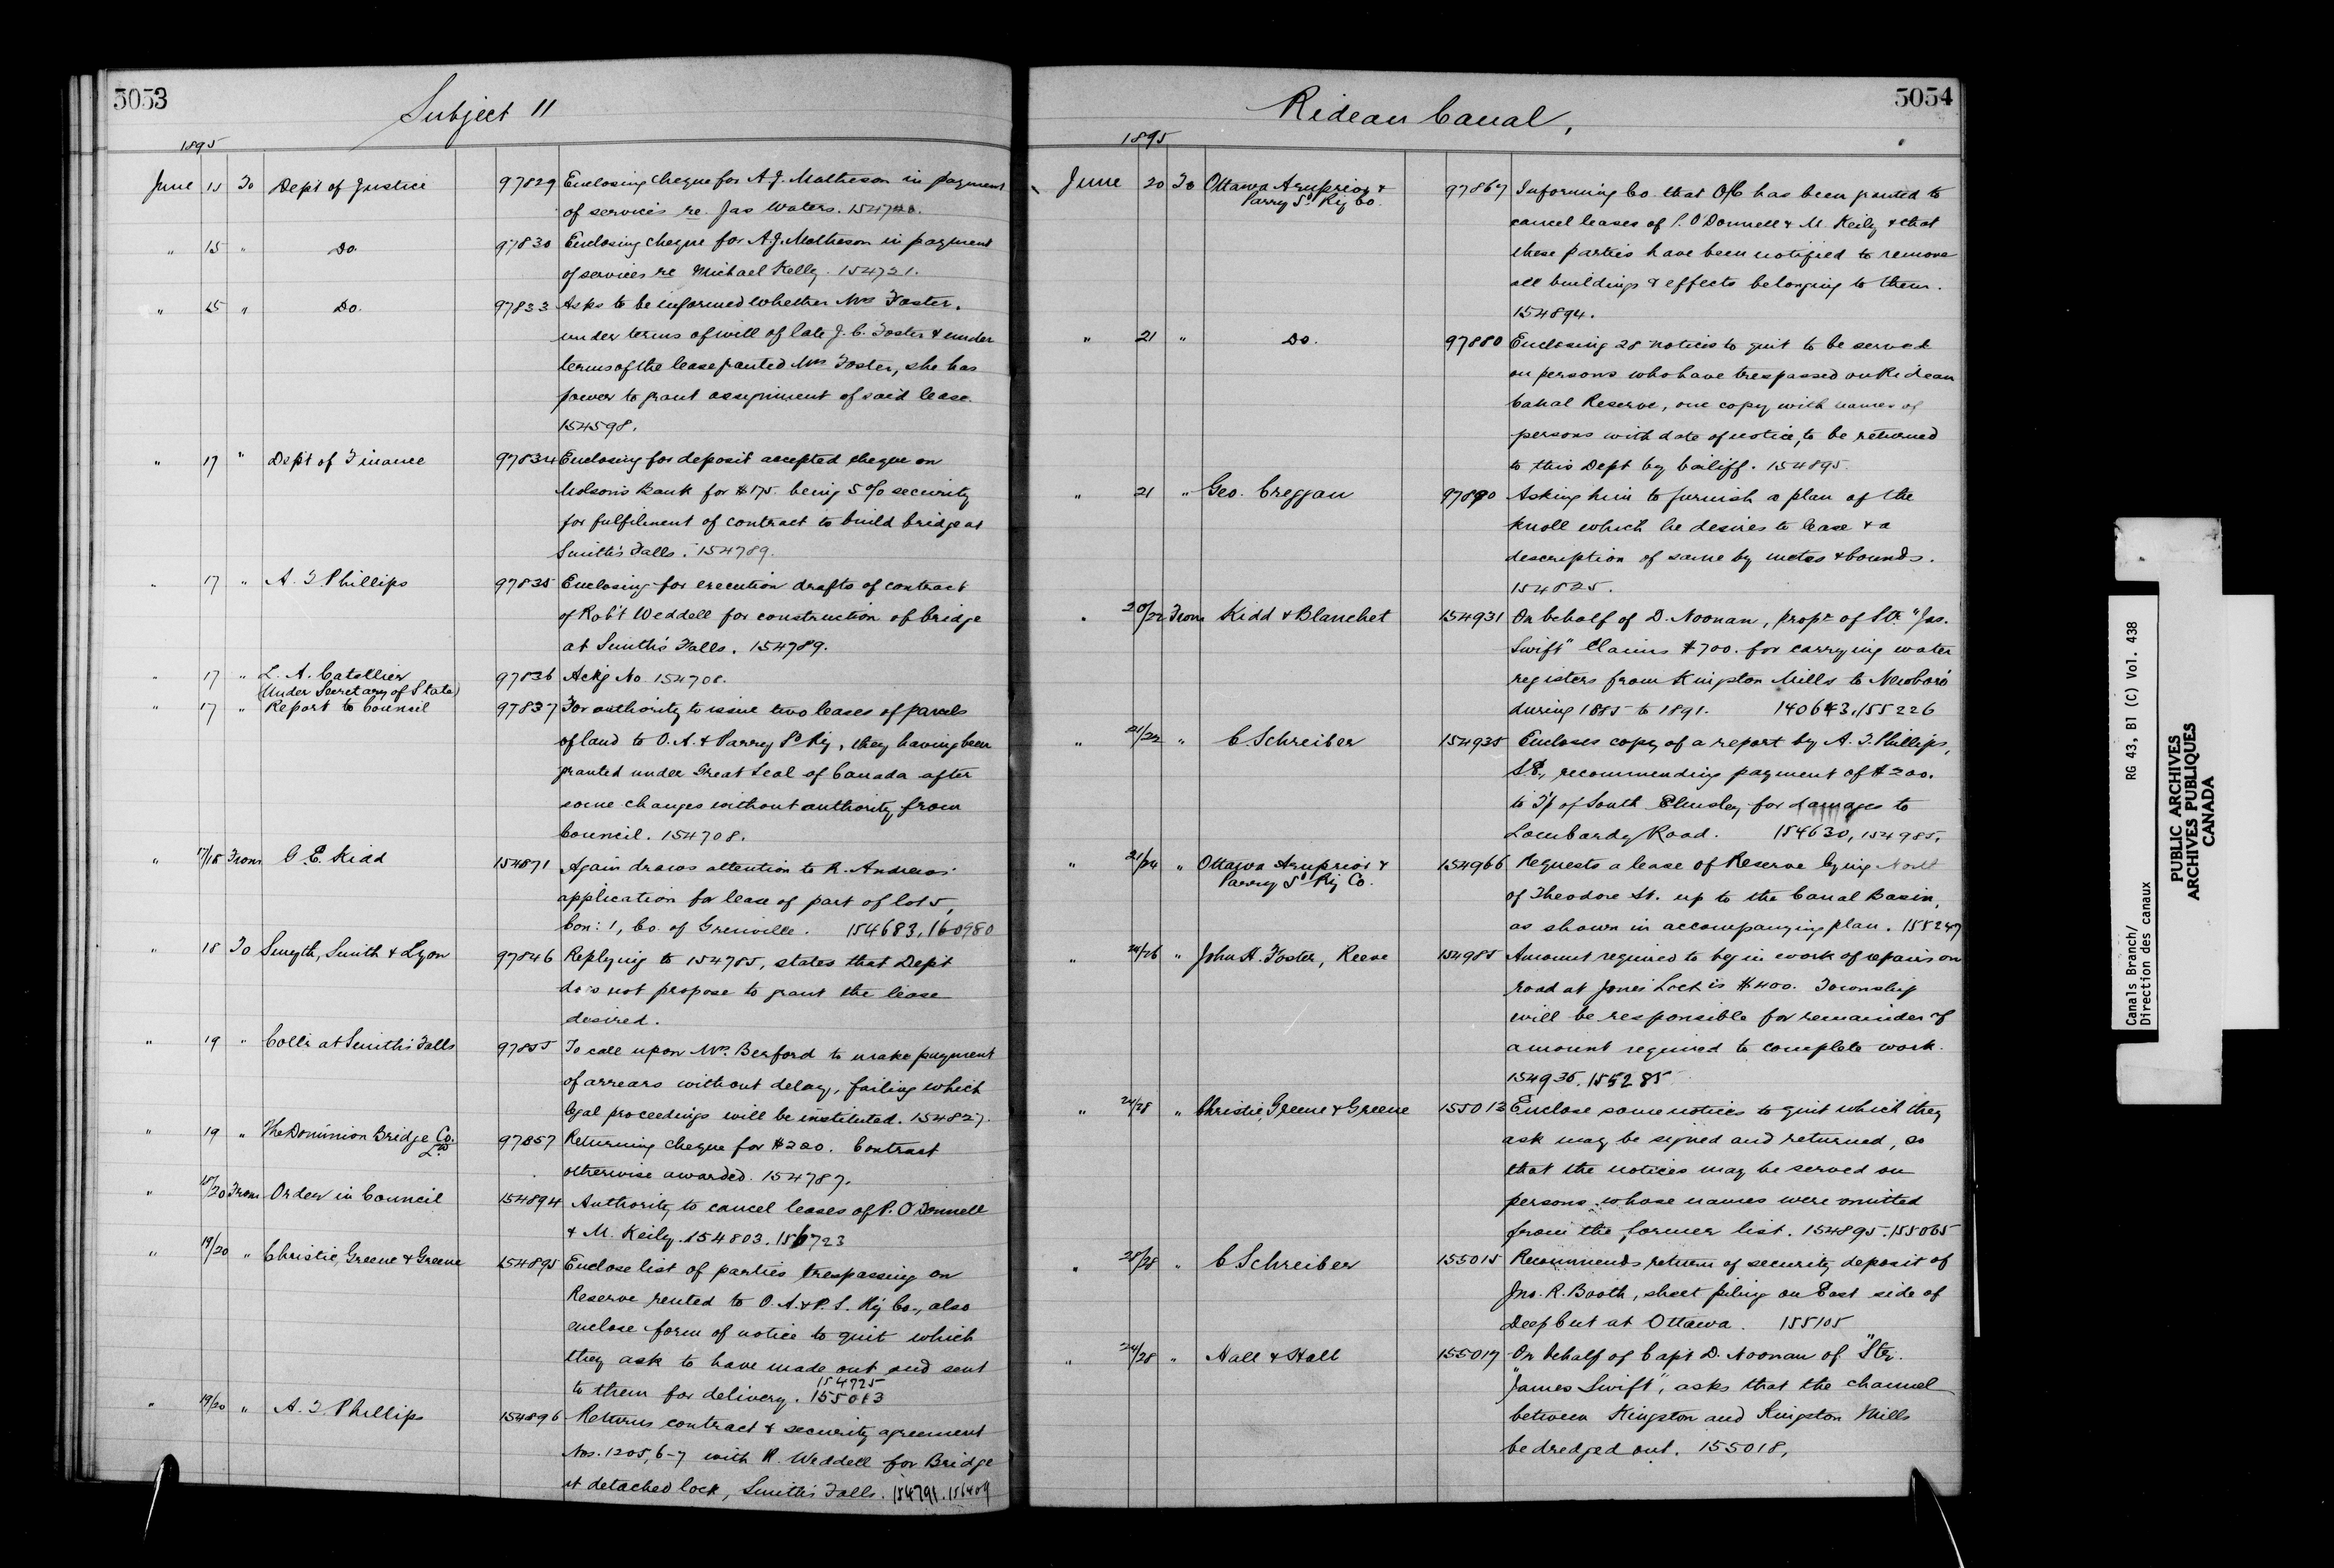 5053
Subject 11
1895
June 15 To Dep't of Justice 97829 Enclosing cheque for A. J. Matheson in payment
of services re. Jas Waters. 154720.
" 15 " Do. 97830 Enclosing cheque for A. J. Matheson in payment
of services re Michael Kelly. 154721.
" 15 " Do. 97833 Asks to be informed whether Mrs Foster.
under terms of will of late J. C. Foster & under
terms of the lease granted Mrs Foster, she has
power to grant assignment of said lease.
154598.
" 17 " Dep't of Finance 97834 Enclosing for deposit accepted cheque on
Molson's Bank for $175. being 5% security
for fulfilment of contract to build bridge at
Smith's Falls. 154789.
" 17 " A. T Phillips 97835 Enclosing for execution drafts of contract
of Rob't Weddell for construction of bridge
at Smith's Falls. 154789.
" 17 " L. A. Catellier 97836 Ackg No 154708.
(Under Secretary of State)
" 17 " Report to Council 97837 For authority to issue two leases of parcels
of land to O. A. & Parry Sd Ry, they having been
granted under Great Seal of Canada after
some changes without authority from
Council. 154708.
" 17/18 From G. E. Kidd 154871 Again draws attention to R. Andrews'
application for lease of part of lot 5,
Con: 1, Co. of Grenville. 154683, 160980
" 18 To Smyth, Smith & Lyon 97846 Replying to 154785, states that Dept
does not propose to grant the lease
desired.
" 19 " Coll'r at Smith's Falls 97855 To call upon Mrs. Berford to make payment
of arrears without delay, failing which
legal proceedings will be instituted. 154827.
" 19 " The Dominion Bridge Co. 97857 Returning cheque for $200. Contract
Ld
otherwise awarded. 154787.
" 18/20 From Order in Council 154894 Authority to cancel leases of P. O'Donnell
& M. Keily. 154803. 156723
" 19/20 " Christie, Greene & Greene 154895 Enclose list of parties trespassing on
Reserve rented to O. A. & P. S. Ry Co., also
enclose form of notice to quit which
they ask to have made out and sent
154725
to them for delivery. 155013
" 19/20 " A. T. Phillips 154896 Returns contract & security agreement
Nos. 1205, 6-7 with R. Weddell for Bridge
at detached lock, Smith's Falls. 154791. 156409
5054
Rideau Canal,
1895
June 20 To Ottawa Arnprior & 97867 Informing Co. that O/C has been granted to
Parry Sd Ry Co.
cancel leases of P. O'Donnell & M. Keily & that
these parties have been notified to remove
all buildings & effects belonging to them.
154894.
" 21 " Do. 97880 Enclosing 28 notices to quit to be served
on persons who have trespassed on Rideau
Canal Reserve, one copy with names of
persons with date of notice, to be returned
to this Dept by bailiff. 154895.
" 21 " Geo. Creggan 97890 Asking him to furnish a plan of the
knoll which he desires to lease & a
description of same by metes & bounds.
154825.
" 20/22 From Kidd & Blanchet 154931 On behalf of D. Noonan, propr of Str. "Jas.
Swift" Claims $700. for carrying water
registers from Kingston Mills to Newboro'
during 1885 to 1891. 140643, 155226
" 21/22 " C Schreiber 154935 Encloses copy of a report by A. T. Phillips,
S.E., recommending payment of $200.
to T'p of South Elmsley for damages to
Lombardy Road. 154630, 154985,
" 21/24 " Ottawa Arnprior & 154966 Requests a lease of Reserve lying North
Parry Sd Ry Co.
of Theodore St. up to the Canal Basin,
as shown in accompanying plan. 155247
" 24/26 " John H. Foster, Reeve 154985 Amount required to begin work of repairs on
road at Jones' Lock is $400. Township
will be responsible for remainder of
amount required to complete work.
154935. 155285
" 24/28 " Christie, Greene & Greene 155013 Enclose some notices to quit which they
ask may be signed and returned, so
that the notices may be served on
persons whose names were omitted
from the former list. 154895. 155065
" 28/28 " C Schreiber 155015 Recommends return of security deposit of
Jno. R. Booth, sheet piling on East side of
Deep Cut at Ottawa. 155105
" 24/28 " Hall & Hall 155017 On behalf of Capt D. Noonan of "Str.
"James Swift", asks that the channel
between Kingston and Kingston Mills
be dredged out. 155018,
Canals Branch/ RG 43, B1 (C) Vol. 438
Direction des canaux
PUBLIC ARCHIVES
ARCHIVES PUBLIQUES
CANADA